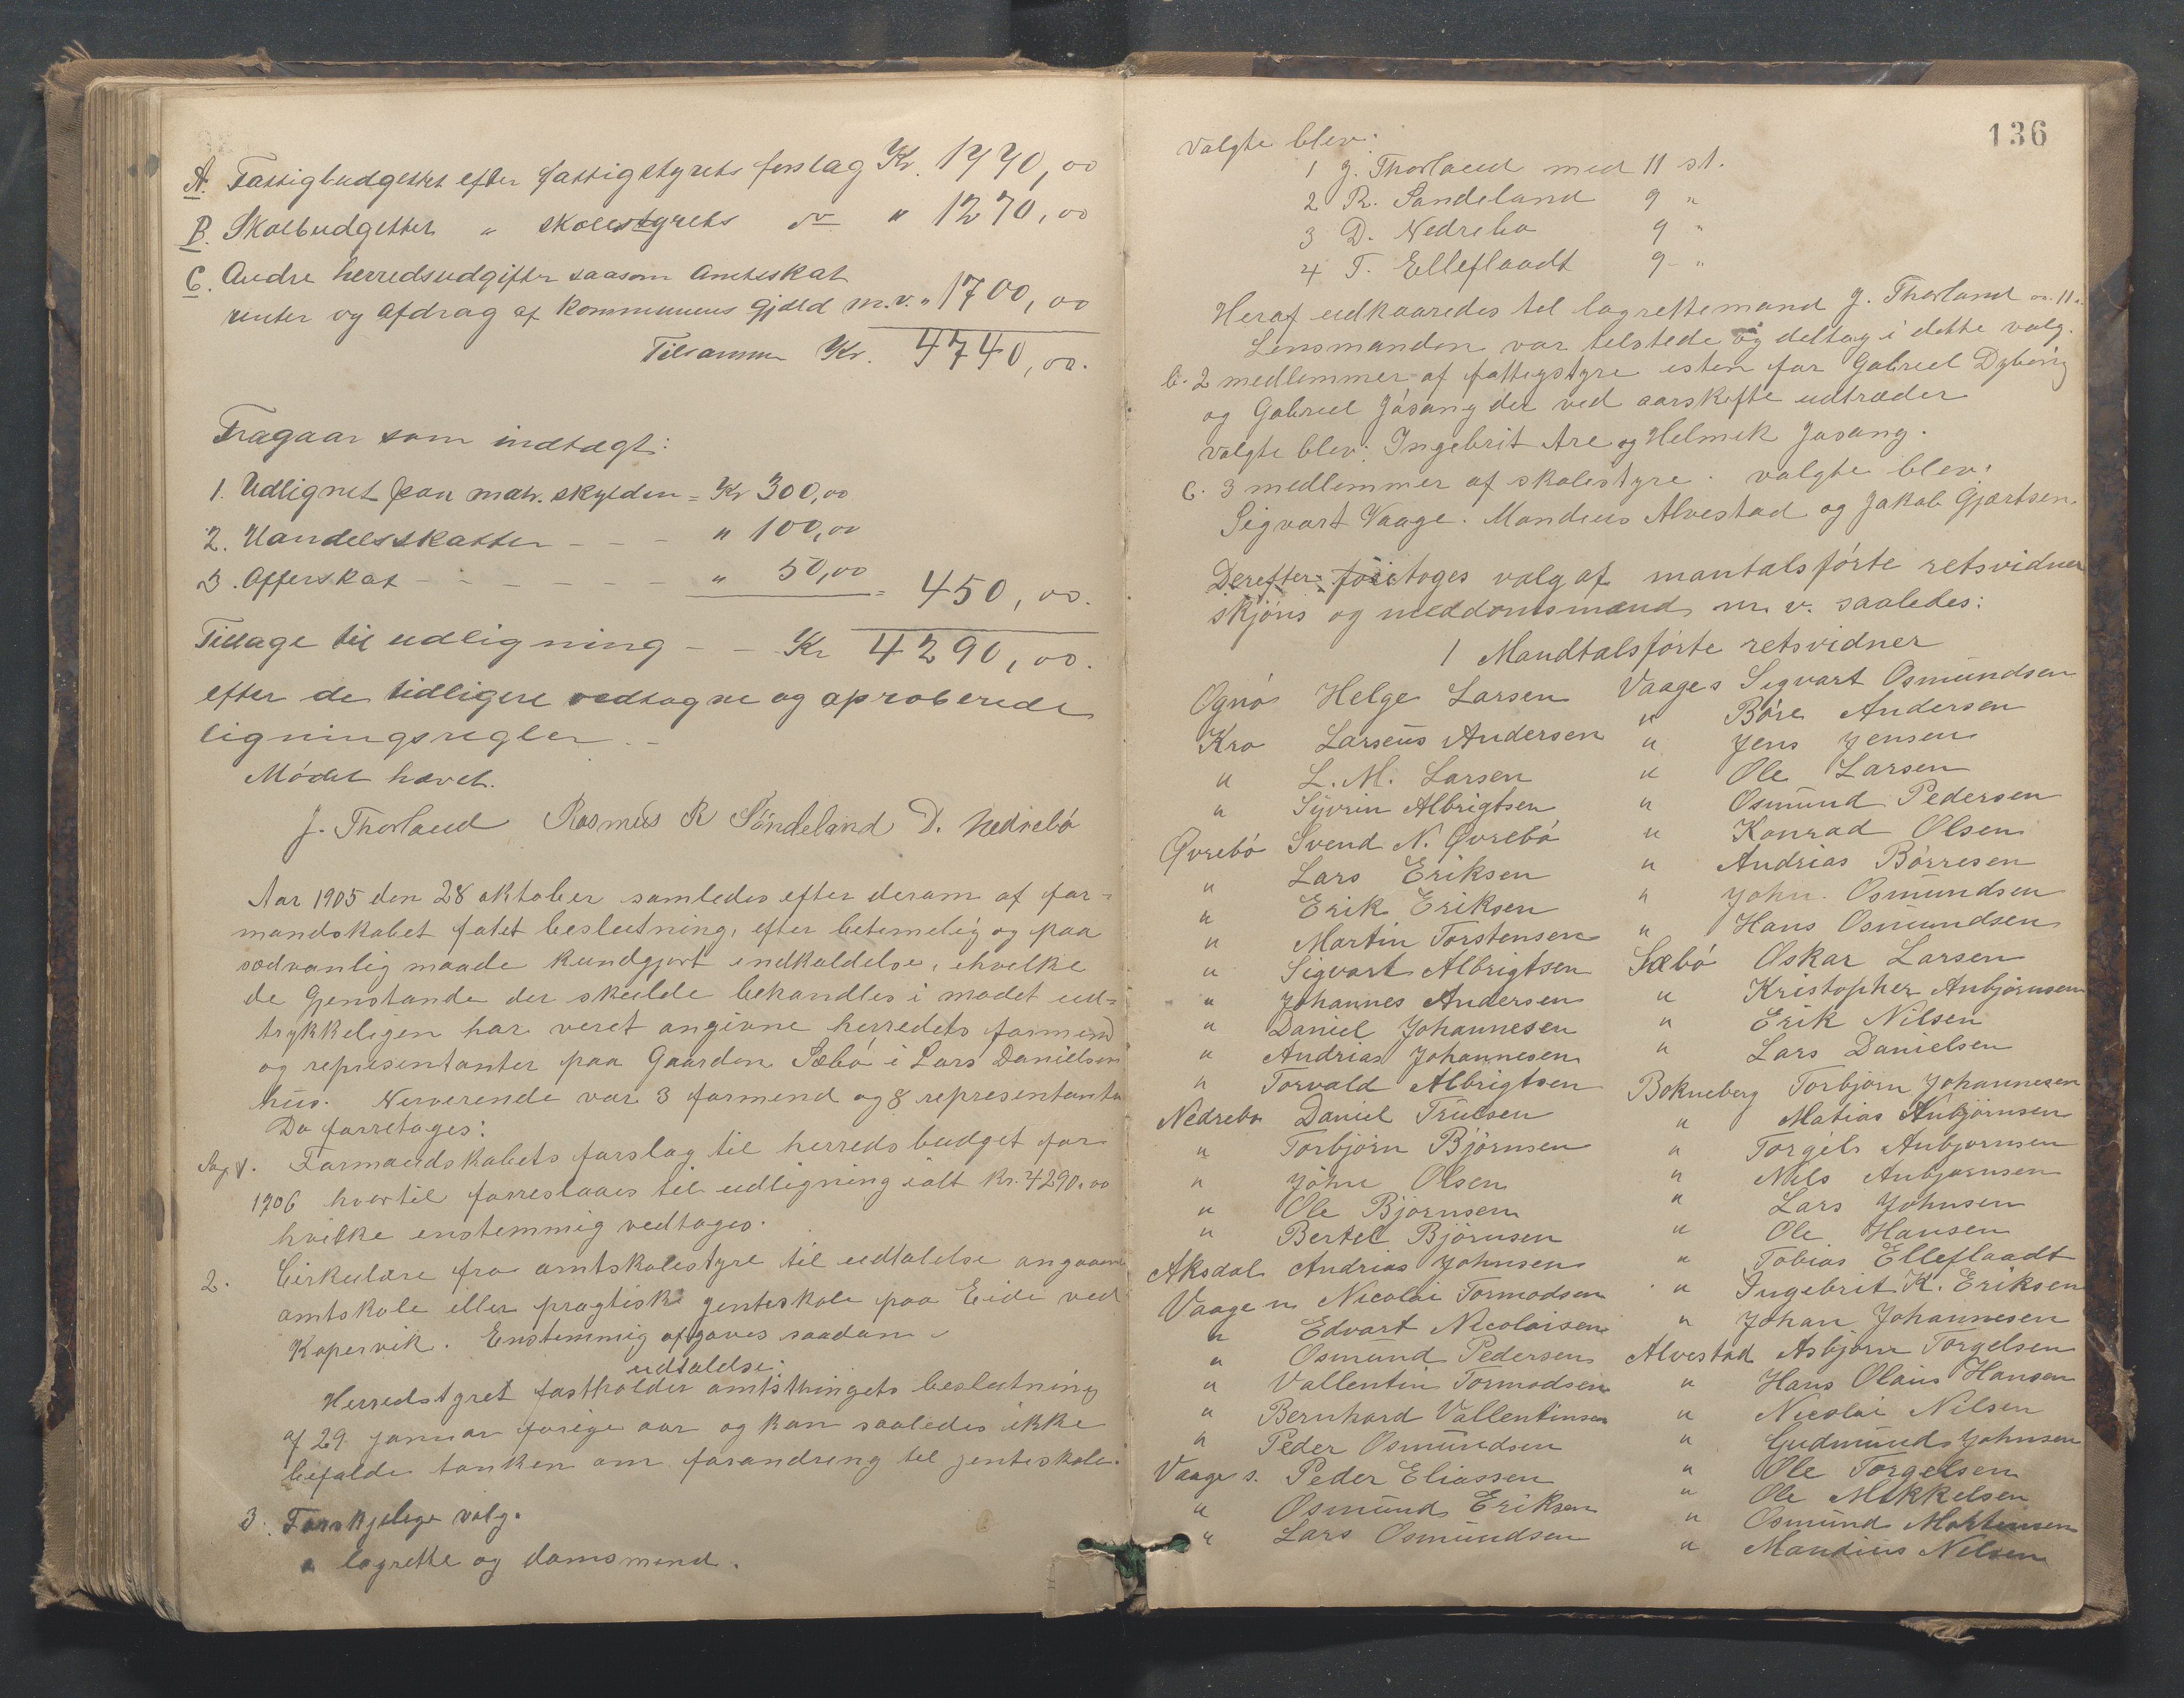 A. Fattigbudgettet efter fattigstyrets forslag Kr. 1770,00
B. Skolbudgettet " skolestyrets do " 1270,00
C. Andre herredsudgifter saasom Amtsskat
renter og afdrag af kommunens gjæld m.v. " 1700,00
Tilsammen Kr. 4740,00.
Fragaar som indtægt:
1. Udlignet paa matr. skylden = Kr 300,00
2. Handelsskatten - - - " 100,00
3. Offerskat - - - - - - " 50,00 = 450,00.
Tillage til udligning - - Kr 4290,00.
efter de tidligere vedtagne og aproberede
ligningsregler. -
Mödet hævet.
J. Thorland Rasmus R Söndeland D. Nedrebö
Aar 1905 den 28 oktober samledes efter derom af for-
mandskabet fatet beslutning, efter betimelig og paa
sædvanlig maade kundgjort indkaldelse, ihvilke
de Gjenstande der skulde behandles i mødet ud-
trykkeligen har veret angivne herredets formend
og representanter paa Gaarden Sæbö i Lars Danielsen
hus. Nerverende var 3 formend og 8 representanter
Da forretages:
Sag 1. Formandskabets forslag til herredsbudget for
1906 hvortil forreslaaes til udligning ialt Kr. 4290.00
hvilke enstemmig vedtages.
2. Cirkulære fra amtskolestyre til udtalelse angaaende
amtskole eller pragtisk jenteskole paa Eide ved
Kopervik. Enstemmig afgaves saadan
udtalelse:
Herredstyret fastholder amtsthingets beslutning
af 29 januar forige aar og kan saaledes ikke
bifalde tanken om forandring til jenteskole.
3. Forskjelige valg.
a lagrette og domsmend.
136
Valgte blev:
1 J. Thorland med 11 st.
2 R. Søndeland 9 "
3 D. Nedrebø 9 "
4 T. Elleflaadt 9 "
Heraf udkaaredes til lagrettemand J. Thorland m. 11 st.
Lensmanden var tilstede og deltag i dette valg.
b. 2 medlemmer af fattigstyre isten for Gabriel Dybing
og Gabriel Jøsang der ved aarskifte udtræder
valgte blev: Ingebrit Are og Helmik Jøsang.
C. 3 medlemmer af skolestyre. valgte blev:
Sigvart Vaage. Mandius Alvestad og Jakob Gjærtsen.
Derefter foretoges valg af mantalsførte retsvidner
skjöns og meddomsmænd m. v. saaledes:
1 Mandtalsförte retsvidner
Ognö Helge Larsen
Kro Larseus Andersen
" L. M. Larsen
" Syvrin Albrigtsen
Øvrebö Svend N. Øvrebö
" Lars Eriksen
" Erik Eriksen
" Martin Torstensen
" Sigvart Albrigtsen
" Johannes Andersen
" Daniel Johannesen
" Andrias Johannesen
" Torvald Albrigtsen
Nedrebø Daniel Trulsen
" Torbjörn Björnsen
" John Olsen
" Ole Bjørnsen
" Bertel Björnsen
Aksdal Andrias Johnsen
Vaage n Nicolai Tormodsen
" Edvart Nicolaisen
" Osmund Pedersen
" Vallentin Tormodsen
" Bernhard Vallentinsen
" Peder Osmundsen
Vaage s. Peder Eliassen
" Osmund Eriksen
" Lars Osmundsen
Vaage s Sigvart Osmundsen
" Böre Andersen
" Jens Jensen
" Ole Larsen
" Osmund Pedersen
" Konrad Olsen
" Andrias Börresen
" John Osmundsen
" Hans Osmundsen
Sæbö Oskar Larsen
" Kristopher Anbjørnsen
" Erik Nilsen
" Lars Danielsen
Bokneberg Torbjörn Johannesen
" Matias Anbjörnsen
" Torgils Anbjørnsen
" Nils Anbjørnsen
" Lars Johnsen
" Ole Hansen
" Tobias Elleflaadt
" Ingebrit K. Eriksen
" Johan Johannesen
Alvestad Asbjørn Torgelsen
" Hans Olaus Hansen
" Nicolai Nilsen
" Gudmund Johnsen
" Ole Torgelsen
" Ole Mikkelsen
" Osmund Mortensen
" Mandius Nilsen